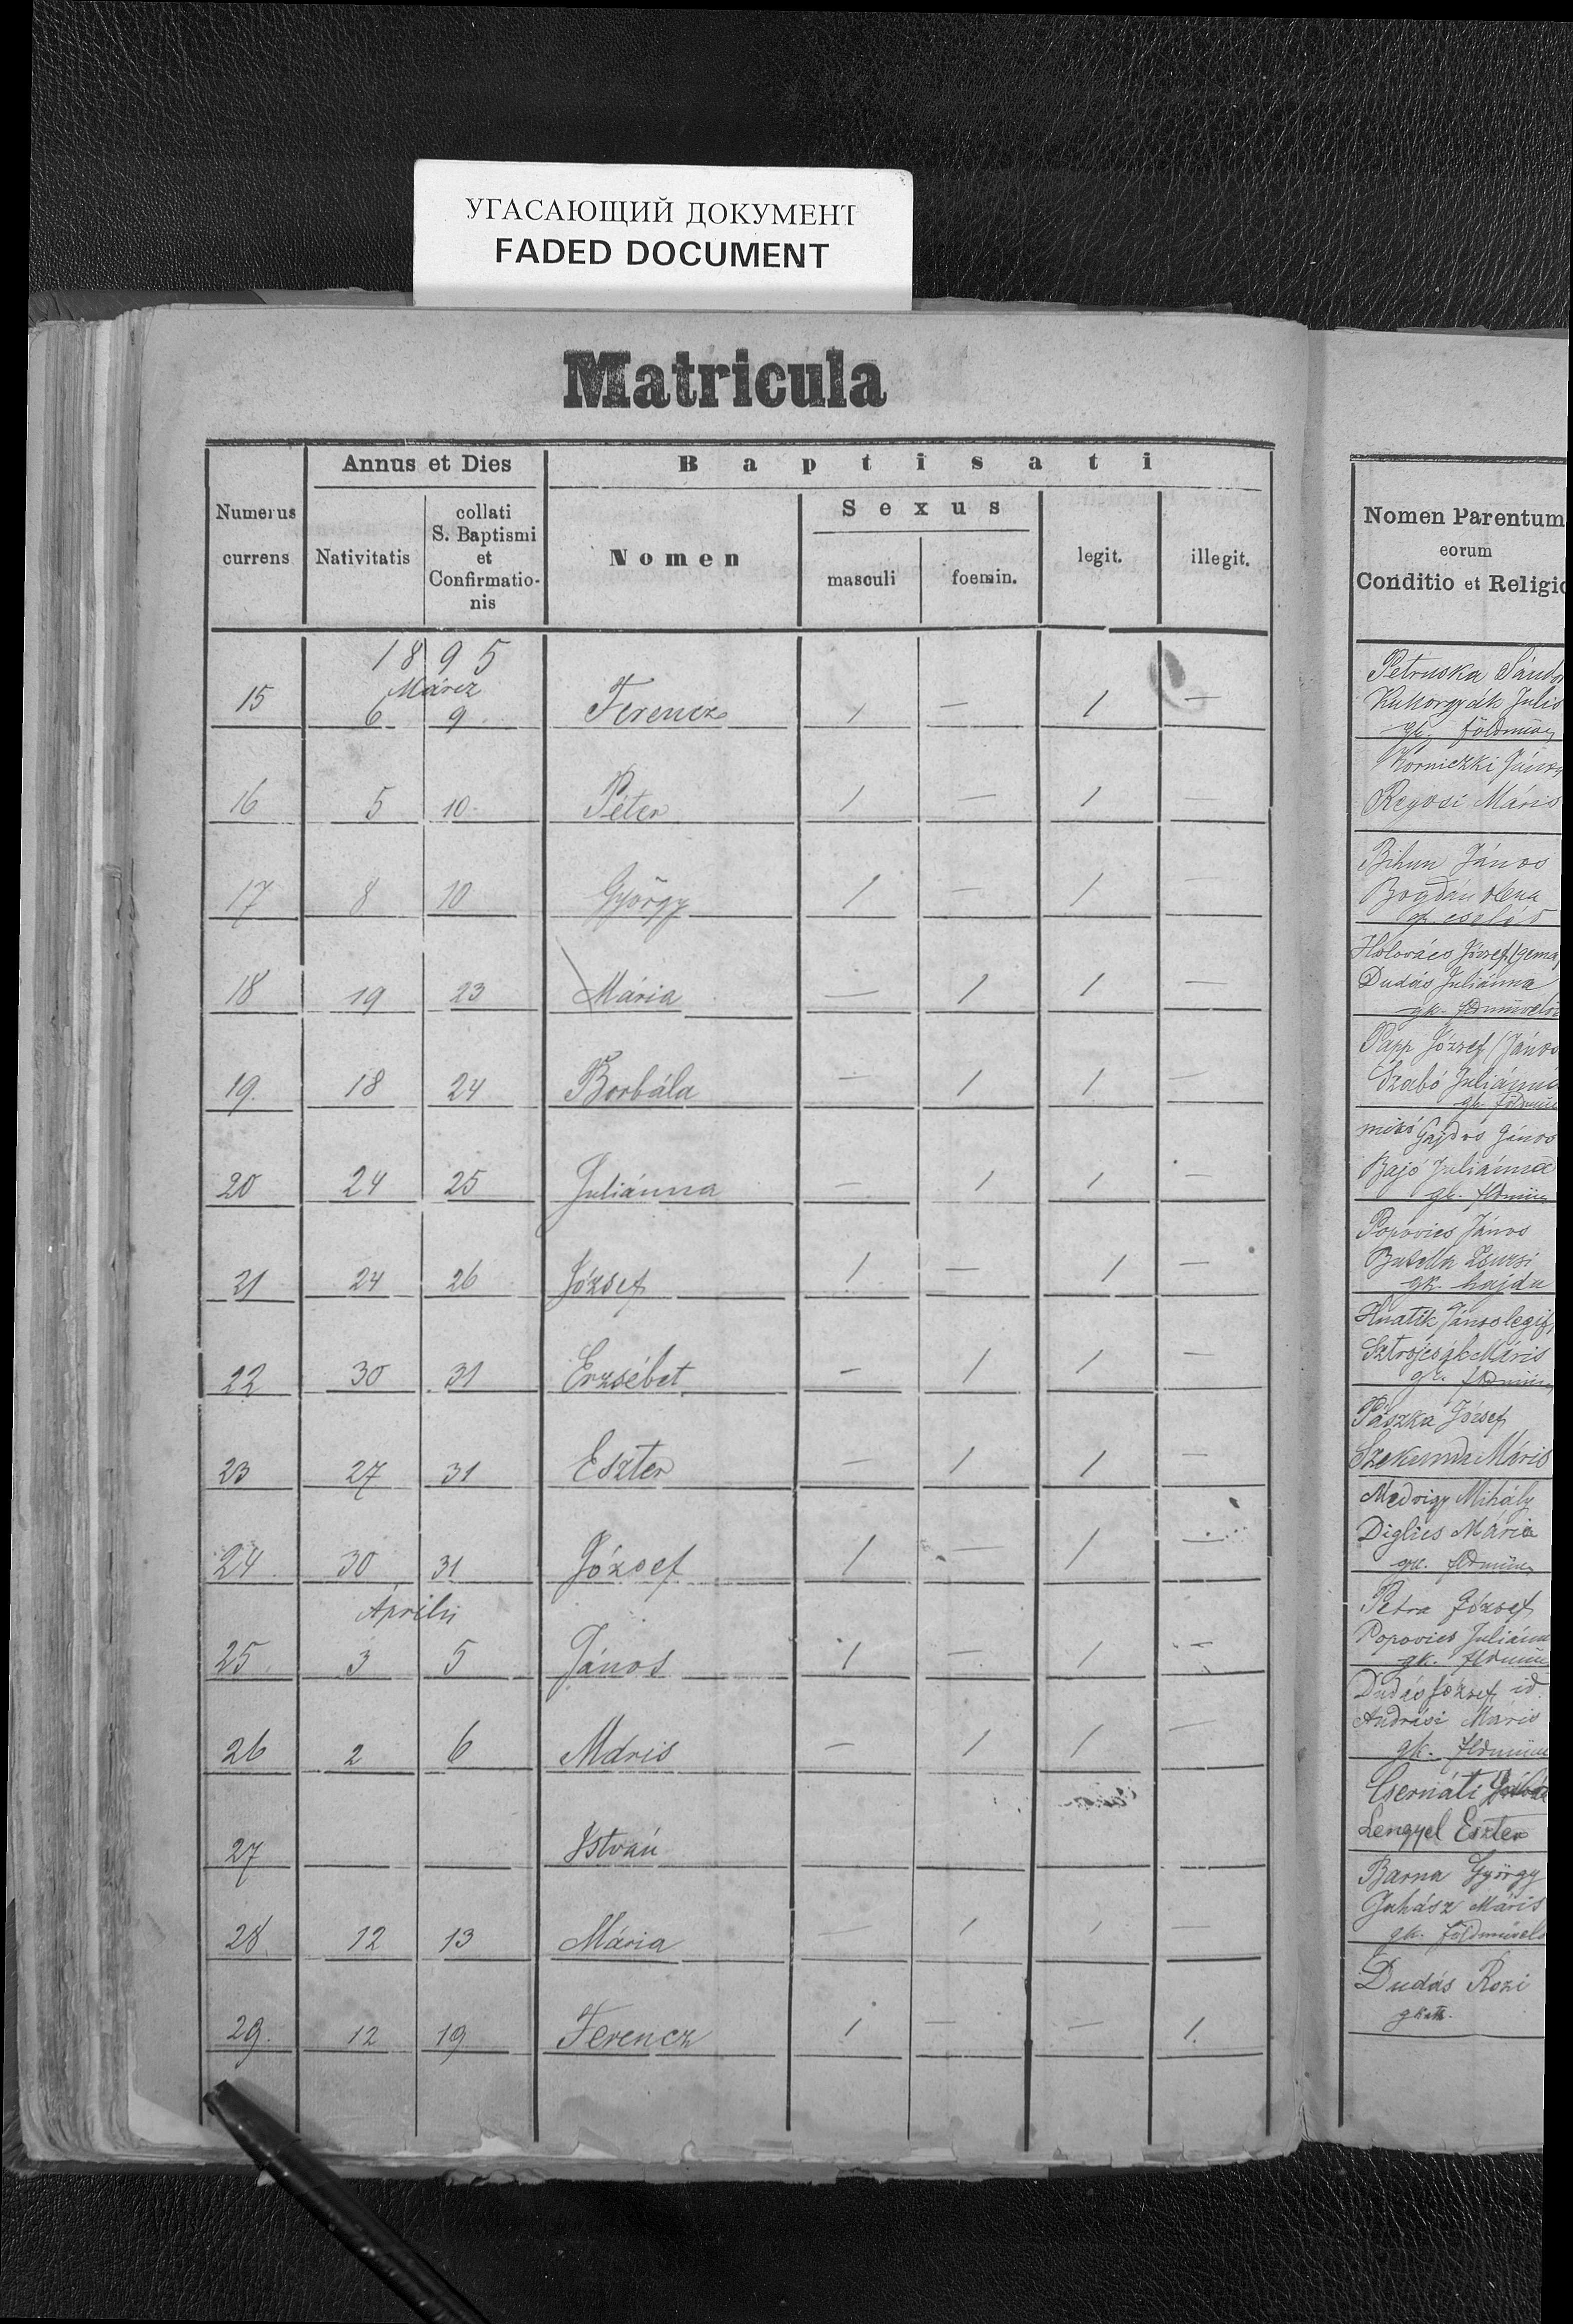 УГАСАЮЩИЙ ДОКУМЕНТ
FADED DOCUMENT
Matricula
Numerus currens
Annus et Dies
Nativitatis
collati S. Baptismi et Confirmatio-nis
Baptisati
Nomen
Sexus
masculi
foemin.
legit.
illegit.
1895
Márcz
15 6 9 Ferencz 1 — 1 —
16 5 10 Péter 1 — 1 —
17 8 10 György 1 — 1 —
18 19 23 Mária — 1 1 —
19. 18 24 Borbála — 1 1 —
20 24 25 Juliánna — 1 1 —
21 24 26 József 1 — 1 —
22 30 31 Erzsébet — 1 1 —
23 27 31 Eszter — 1 1 —
24 30 31 József 1 — 1 —
Április
25. 3 5 János 1 — 1 —
26 2 6 Máris — 1 1 —
27 István
28. 12 13 Mária — 1 1 —
29. 12 19 Ferencz 1 — — 1.
Nomen Parentum
eorum
Conditio et Religio
Petruska Sándor
Julis
gk. földmüv
János
Máris
Bihun János
Bogdán
gk. cseléd
József
Dudás Juliánna
gk. fldmüvelő
Papp József (János
Szabó Juliánna
gk. földmüv
Gajdos János
Bajó Juliánna
gk. fldmüv
Popovics János
Zsuzsi
gk. hajdu
Hnatik János
Máris
gk. fldmüv
Paszka József
Máris
Medvigy Mihály
Mária
gk. fldmüv
Petra József
Popovics Juliánn
gk. fldmüv
Dudás József id.
Andrási Máris
gk. fldmüv
Csernáti
Lengyel Eszter
Barna György
Juhász Máris
gk. földmüvelő
Dudás Rozi
gkath.